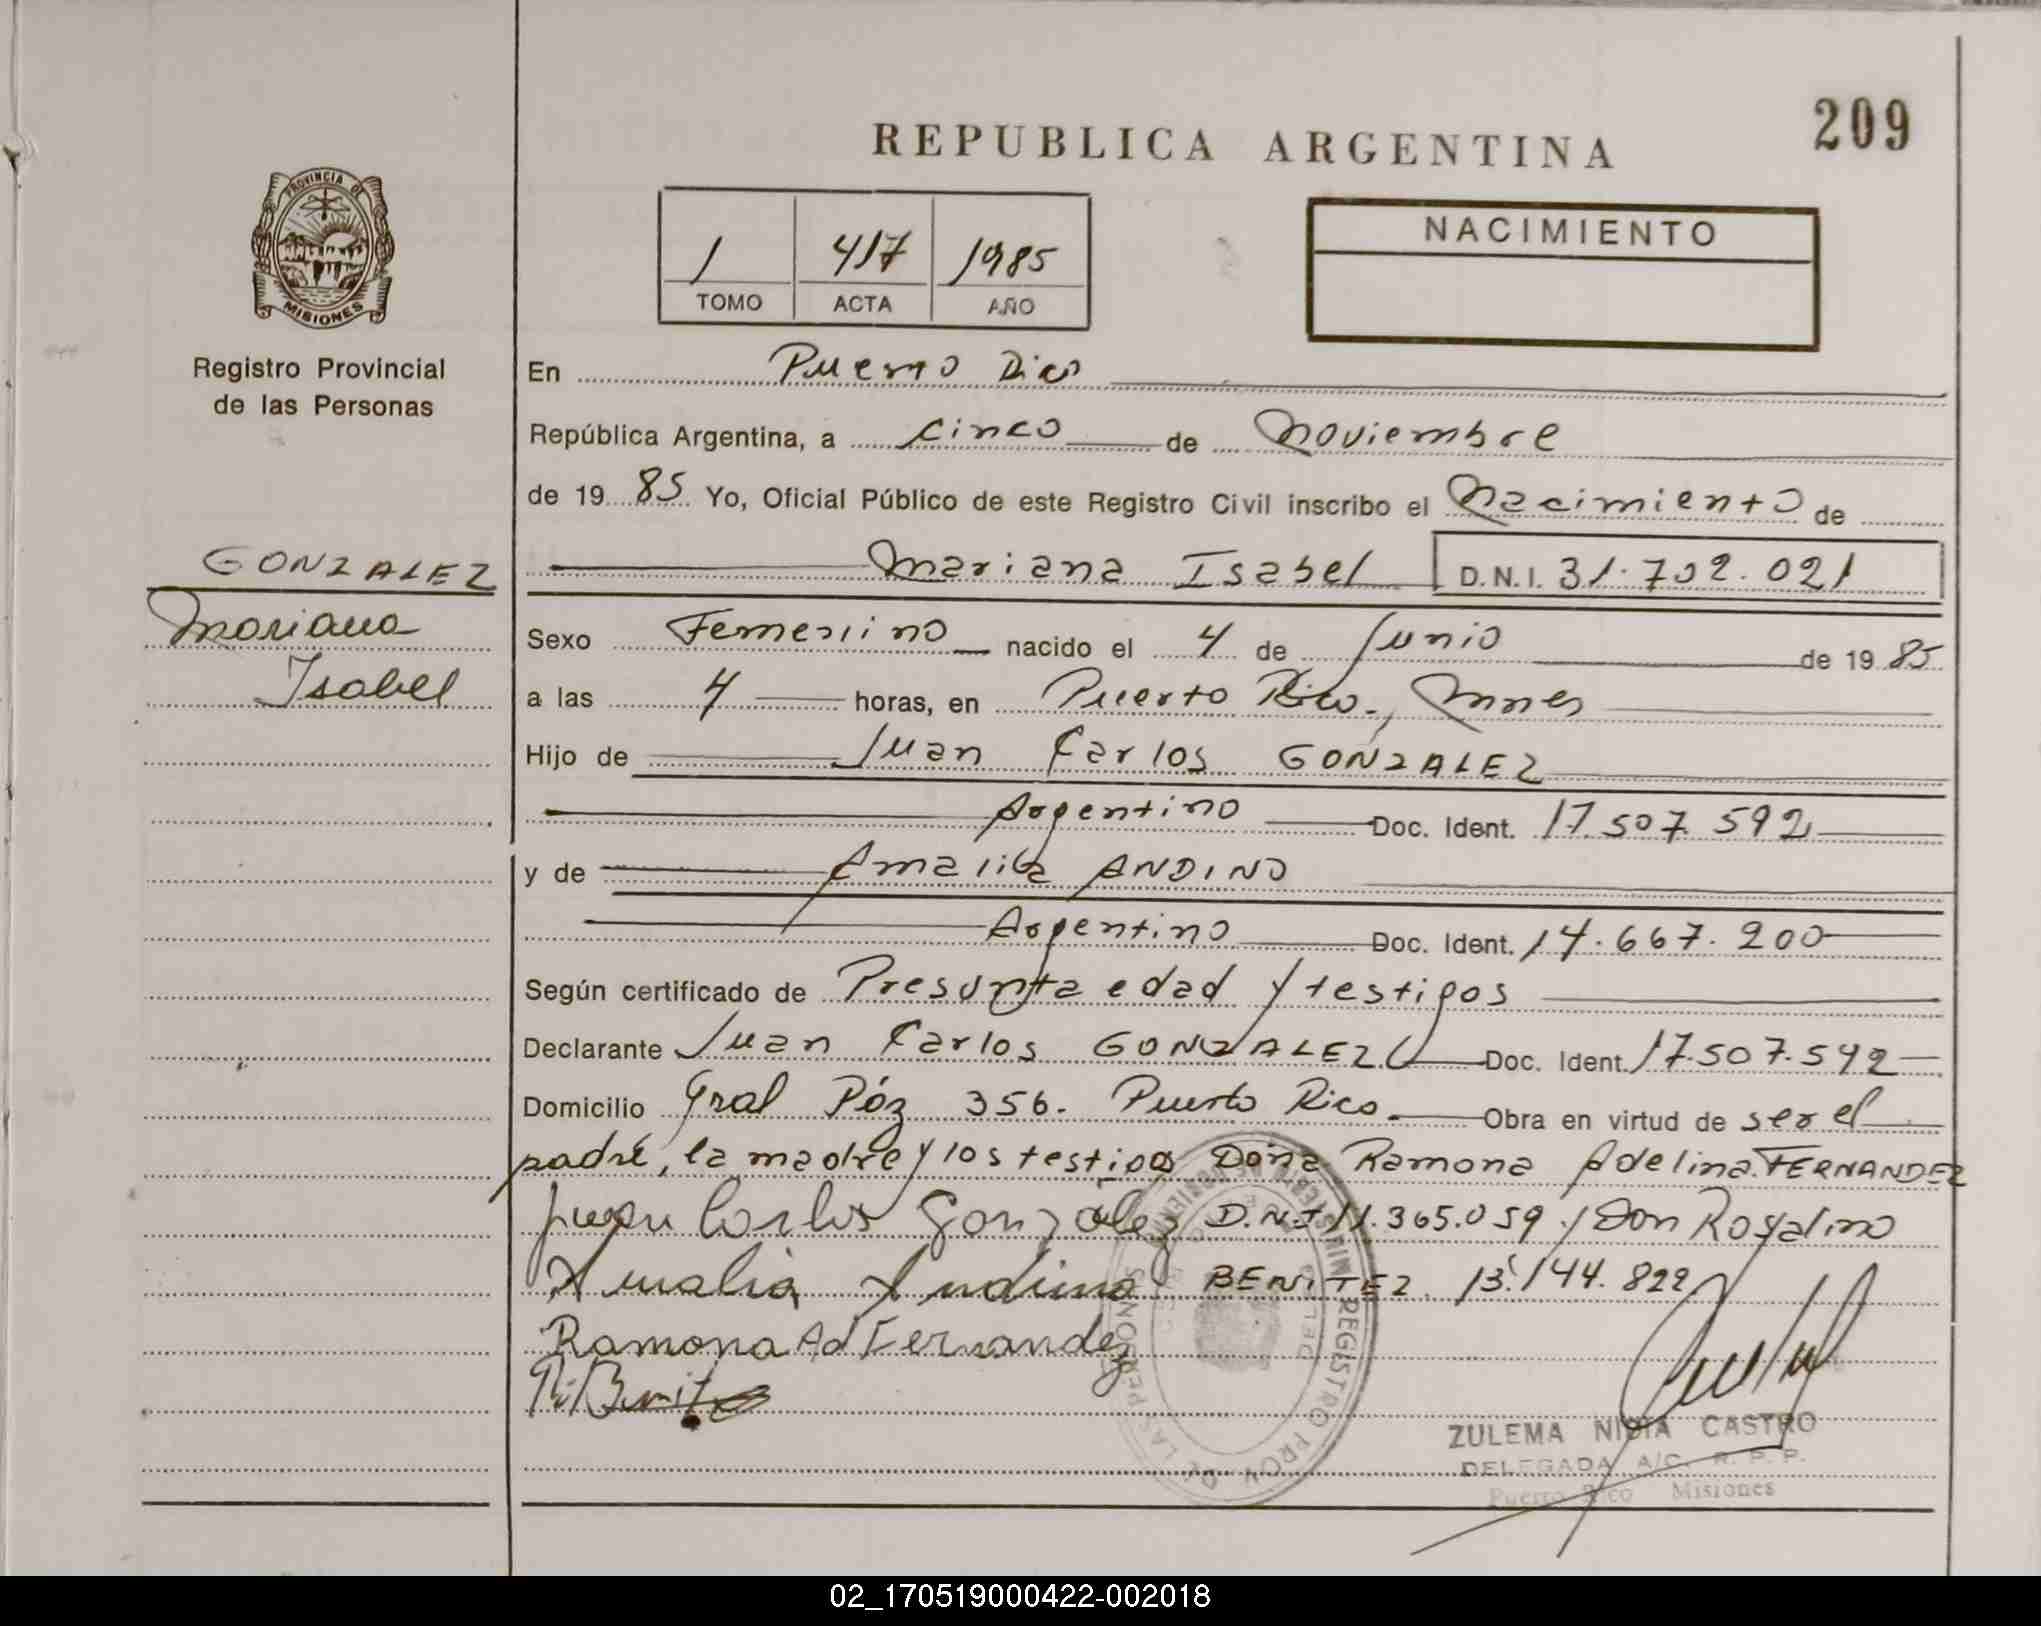 209
REPUBLICA ARGENTINA
PROVINCIA DE
MISIONES
Registro Provincial
de las Personas
1 417 1985
TOMO ACTA AÑO
NACIMIENTO
En Puerto Rico
República Argentina, a cinco de Noviembre
de 19 85 Yo, Oficial Público de este Registro Civil inscribo el Nacimiento de
GONZALEZ
Mariana
Isabel
Mariana Isabel D.N.I. 31.702.021
Sexo Femenino nacido el 4 de Junio de 19 85
a las 4 horas, en Puerto Rico, Mnes
Hijo de Juan Carlos GONZALEZ
Argentino Doc. Ident. 17.507.592
y de Amalia ANDINO
Argentino Doc. Ident. 14.667.200
Según certificado de Presunta edad y testigos
Declarante Juan Carlos GONZALEZ Doc. Ident. 17.507.592
Domicilio Gral Póz 356. Puerto Rico. Obra en virtud de ser el
padre, la madre y los testigos Doña Ramona Adelina FERNANDEZ
Juan Carlos Gonzalez D.N.I 11.365.059 y Don Rosalino
Amalia Andino BENITEZ 13.144.822
Ramona Ad Fernandez
Benitez
REGISTRO PROV. DE LAS PERSONAS
ZULEMA NIDIA CASTRO
DELEGADA A/C. R. P. P.
Puerto Rico Misiones
02_170519000422-002018